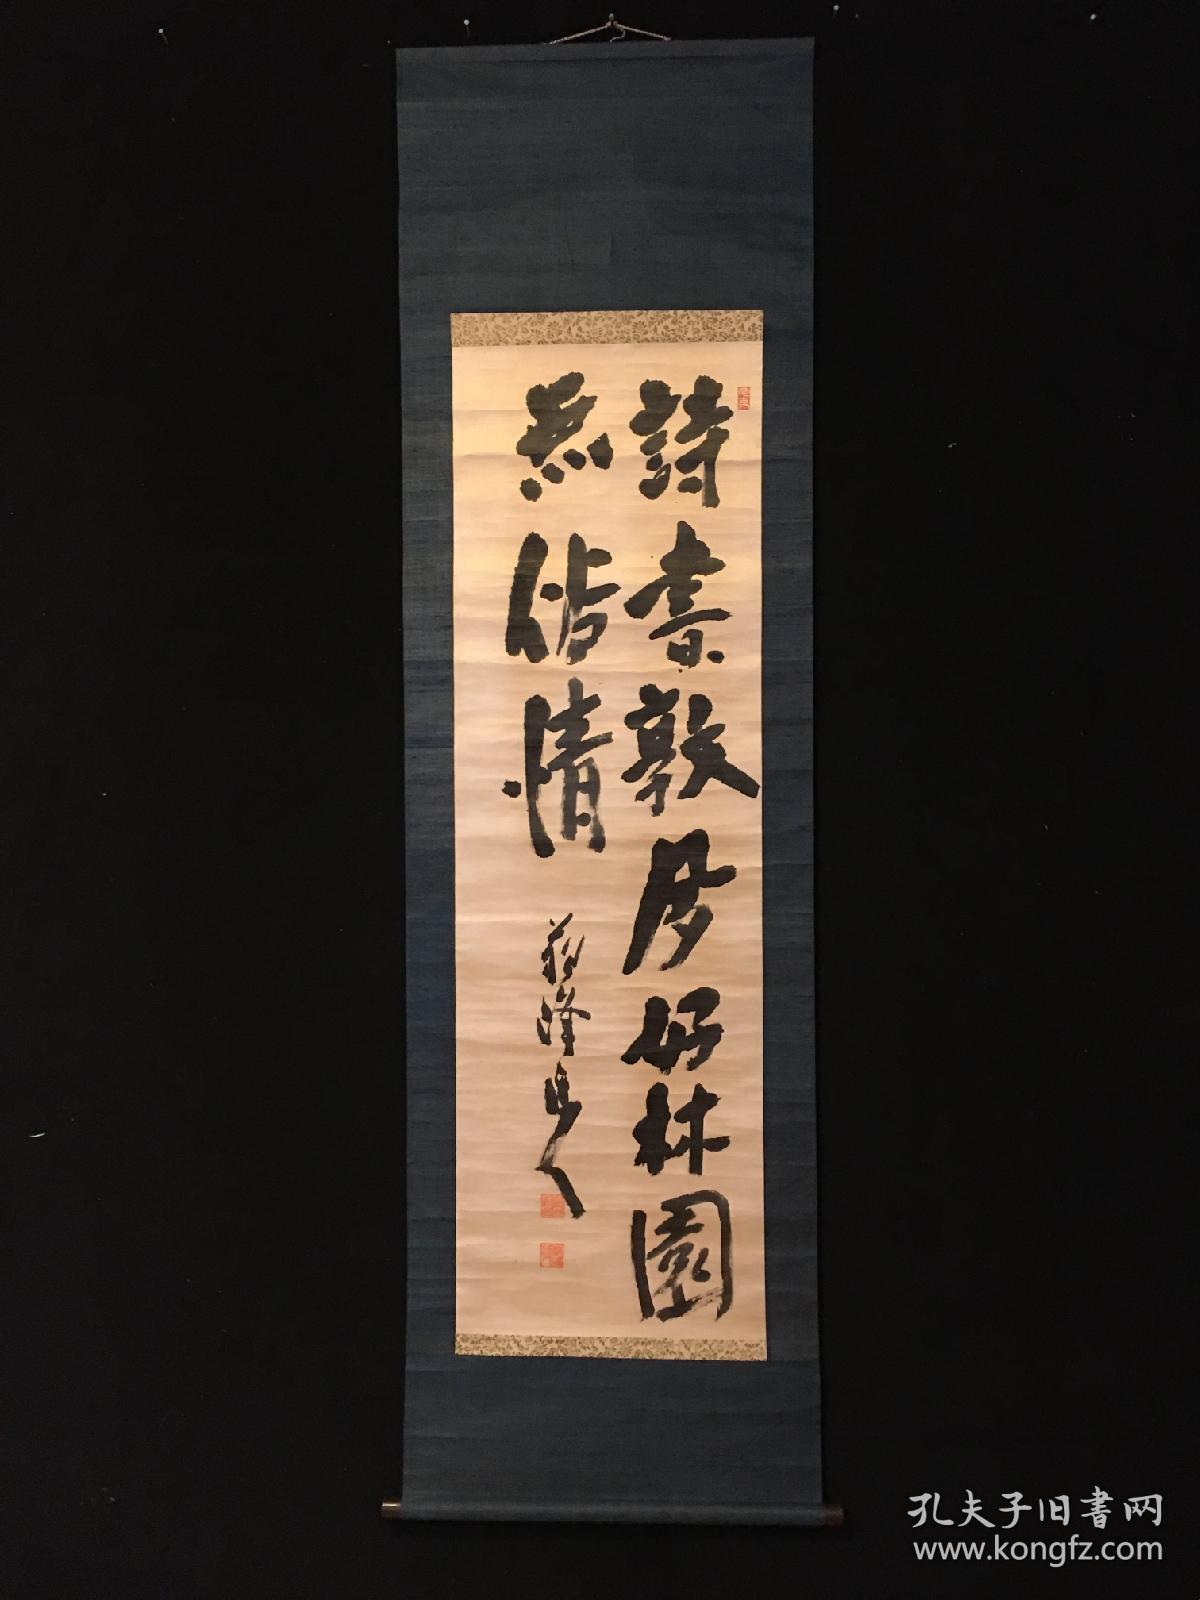 詩書敦夙好林園
無俗情
蘇峰
孔夫子旧書网
www.kongfz.com